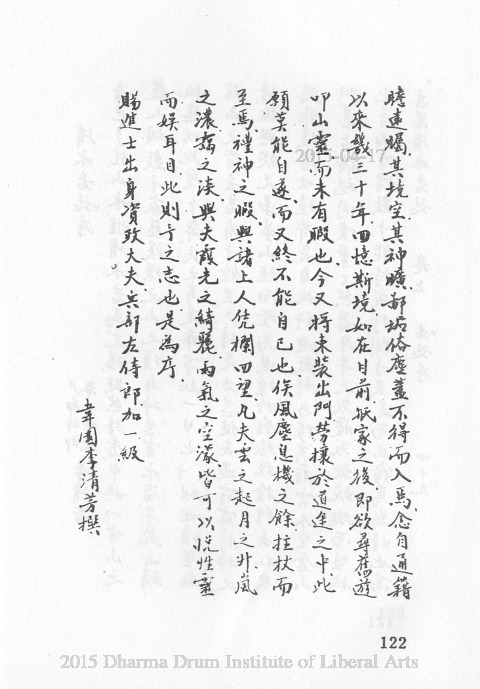 瞻遠矚其境空其神曠鄙瑣俗塵蓋不得而入焉念自通籍
以來幾三十年回憶斯境如在目前抵家之後即欲尋舊遊
叩山靈而未有暇也今又將束裝出門勞攘於道途之中此
願莫能自遂而又終不能自已也俟風塵息機之餘拄杖而
至焉禮神之暇與諸上人凭欄四望凡夫雲之起月之升嵐
之濃靄之淡與夫霞光之綺麗雨氣之空濛皆可以悅性靈
而娛耳目此則予之志也是為序
賜進士出身資政大夫兵部左侍郎加一級
葦園李清芳撰
2015-04-17
122
2015 Dharma Drum Institute of Liberal Arts